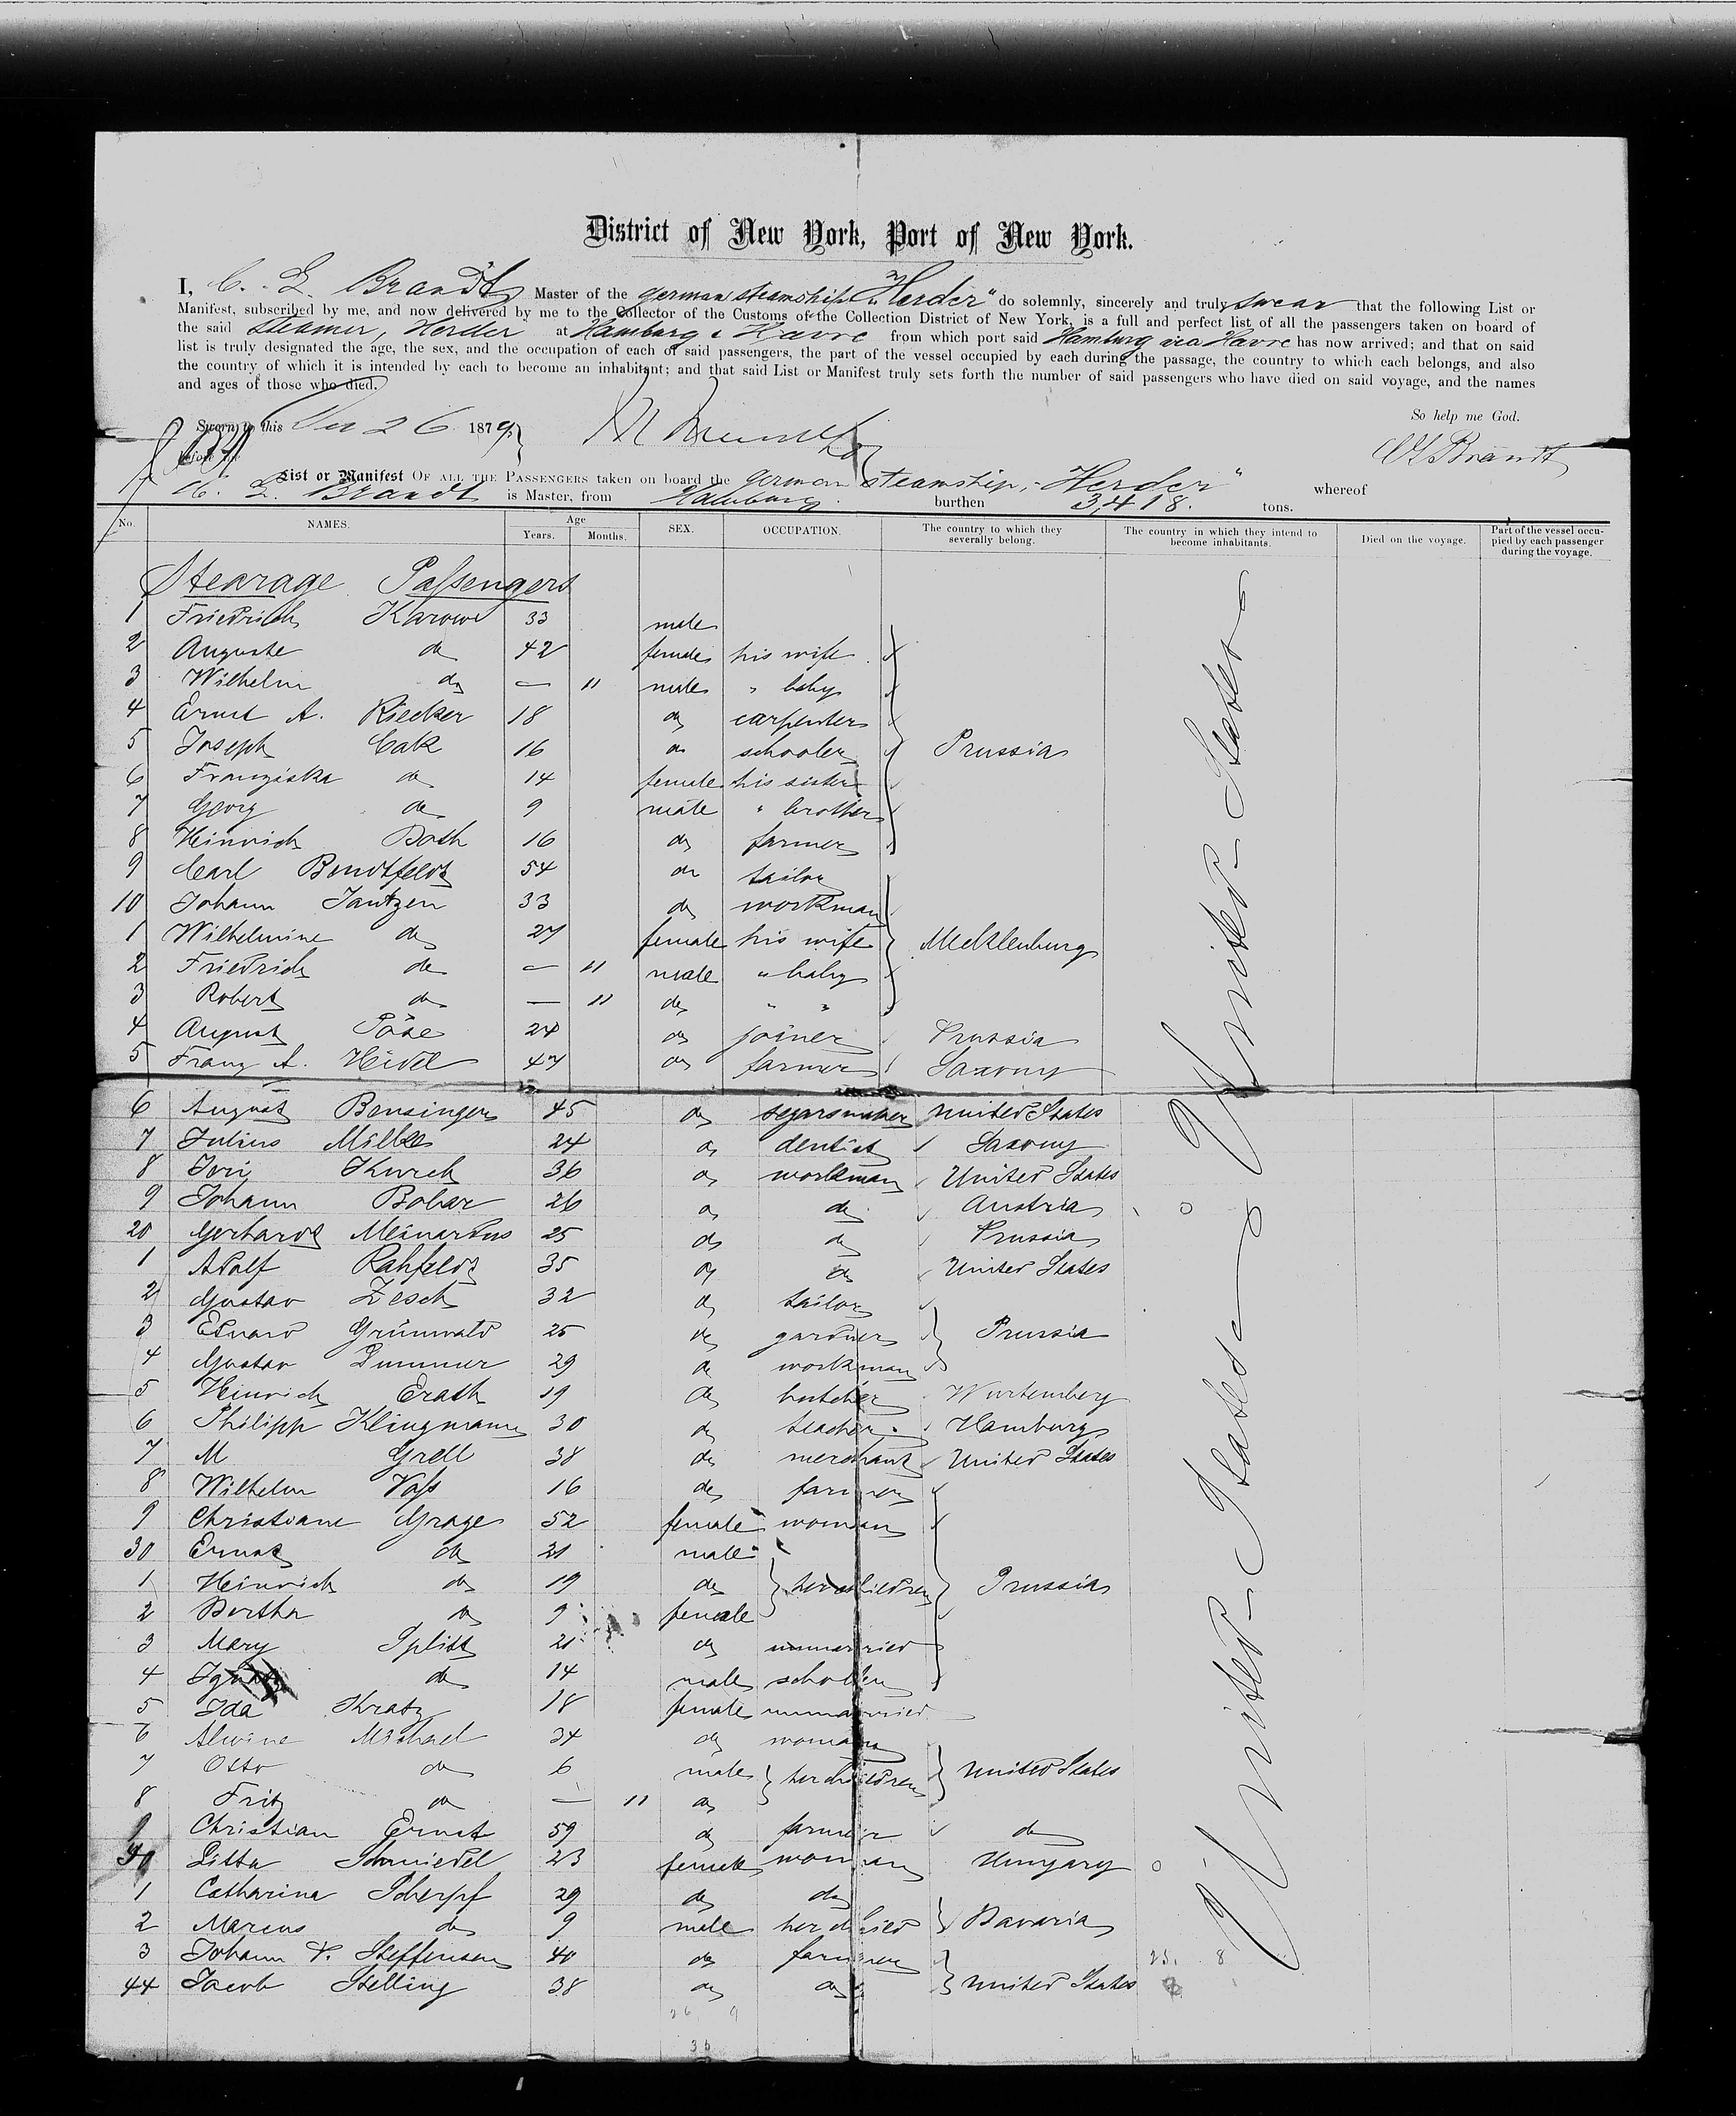 District of New York, Port of New York.
I, C. L. Brandt Master of the german steamship "Herder" do solemnly, sincerely and truly swear that the following List or
Manifest, subscribed by me, and now delivered by me to the Collector of the Customs of the Collection District of New York, is a full and perfect list of all the passengers taken on board of
the said Steamer, Herder at Hamburg & Havre from which port said Hamburg via Havre has now arrived; and that on said
list is truly designated the age, the sex, and the occupation of each of said passengers, the part of the vessel occupied by each during the passage, the country to which each belongs, and also
the country of which it is intended by each to become an inhabitant; and that said List or Manifest truly sets forth the number of said passengers who have died on said voyage, and the names
and ages of those who died.
So help me God.
Sworn to this 26 1879
before me
C L Brandt
List or Manifest OF ALL THE PASSENGERS taken on board the german steamship, "Herder" whereof
C. L. Brandt is Master, from Hamburg burthen 3,418. tons.
No. NAMES. Age Years. Months. SEX. OCCUPATION. The country to which they severally belong. The country in which they intend to become inhabitants. Died on the voyage. Part of the vessel occupied by each passenger during the voyage.
Stearage Passengers
1 Friedrich Karowe 33 male
2 Auguste do 42 female his wife
3 Wilhelm do — 11 male " baby
4 Ernst A. Riecker 18 do carpenter
5 Joseph Cak 16 do schooler Prussia
6 Franziska do 14 female his sister
7 Georg do 9 male " brother
8 Heinrich Both 16 do farmer
9 Carl Bendtfeldt 54 do tailor
10 Johann Jantzen 33 do workman
1 Wilhelmine do 27 female his wife Mecklenburg
2 Friedrich do — 11 male " baby
3 Robert do — 11 do " "
4 August Pöse 24 do joiner Prussia
5 Franz A. Heidel 47 do farmer Saxony
6 August Bensinger 45 do segarsmaker United States
7 Julius Milke 24 do dentist Saxony
8 Jori Kurch 36 do workman United States
9 Johann Bobar 26 do do Austria
20 Gerhardt Meinardus 25 do do Prussia
1 Adolf Rahfeldt 35 do do United States
2 Gustav Zesch 32 do tailor
3 Eduard Grünwald 25 do gardner Prussia
4 Gustav Dummer 29 do workman
5 Heinrich Erath 19 do butcher Wurtemberg
6 Philipp Klingmann 30 do teacher Hamburg
7 M Grell 38 do merchant United States
8 Wilhelm Voss 16 do farmer
9 Christiane Grage 52 female woman
30 Ernst do 21 male
1 Heinrich do 19 do her children Prussia
2 Bertha do 9 female
3 Mary Splitt 21 do unmarried
4 do 14 male schooler
5 Ida Kratz 18 female unmarried
6 Alwine Michael 34 do woman
7 Otto do 6 male her children United States
8 Fritz do — 11 do
9 Christian Ernst 59 do farmer do
40 Litta Schmiedel 23 female woman Hungary
1 Catharina Scherpf 29 do do
2 Marcus do 9 male her child Bavaria
3 Johann V. Steffensen 40 do farmer
44 Jacob Stelling 38 do do United States
United States
United States